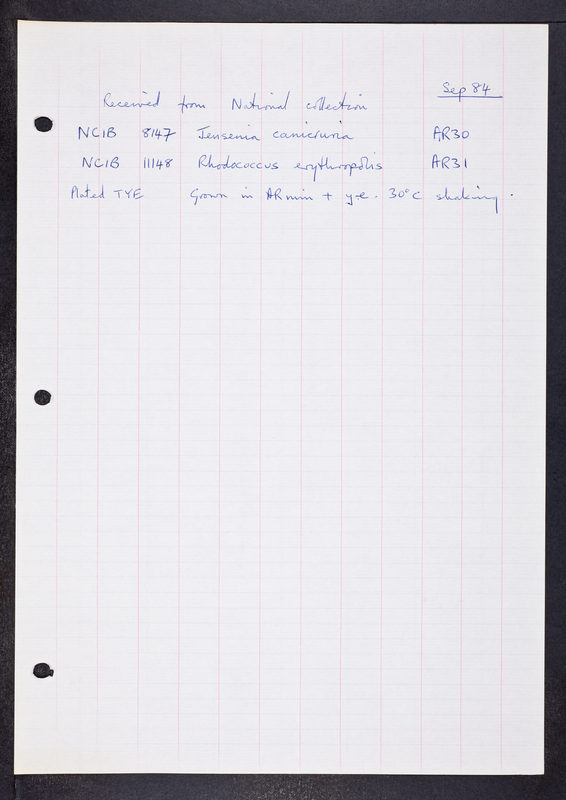 Sep 84
Received from National collection
NCIB 8147 Jensenia canicruria AR30
NCIB 11148 Rhodococcus erythropolis AR31
Plated TYE Grown in AR min + y-e. 30°C shaking.